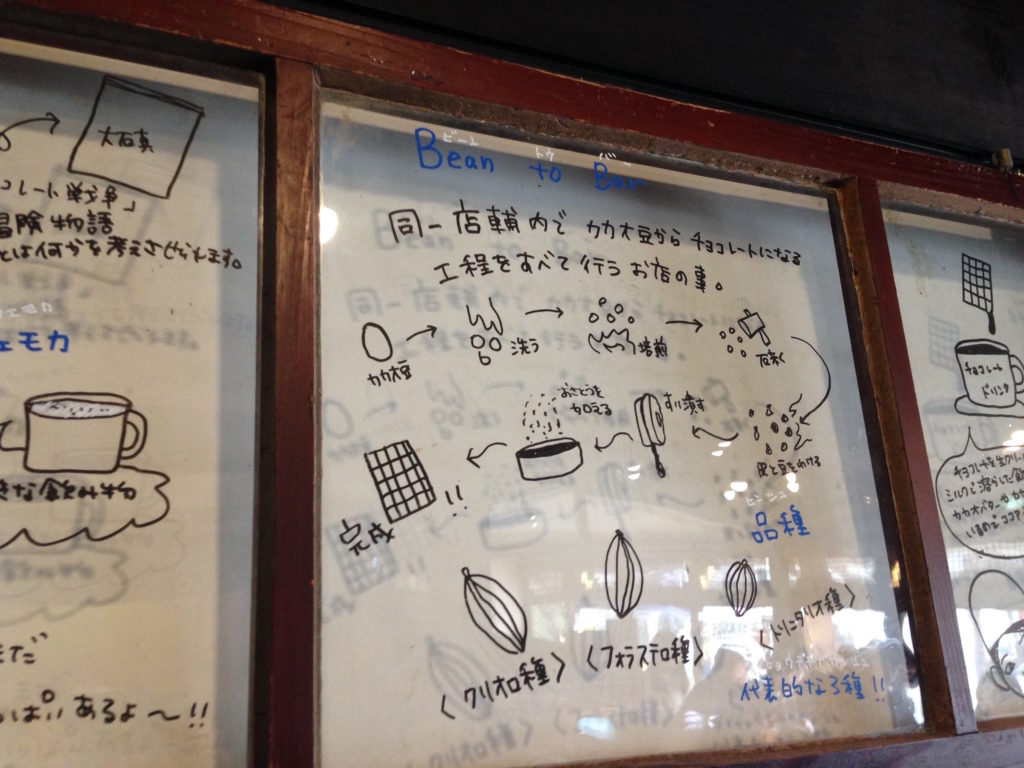 大石真
コレート戦争」
冒険物語
とは何かを考えさせられます。
ェモカ
ェモカ
きな飲み物
まだ
っぱいあるよ〜!!
ビーン トゥ バー
Bean to Bar
同一店舗内で カカオ豆から チョコレートになる
工程をすべて行う お店の事。
カカオ豆
洗う
焙煎
砕く
皮と豆をわける
すり潰す
おさとうを
加える
完成 !!
ヒンシュ
品種
〈クリオロ種〉
〈フォラステロ種〉
〈トリニタリオ種〉
代表的な3種!!
チョコレート
ドリンク
チョコレートを生クリー
ミルクで溶かした飲
カカオバターやカカ
いるのでココア